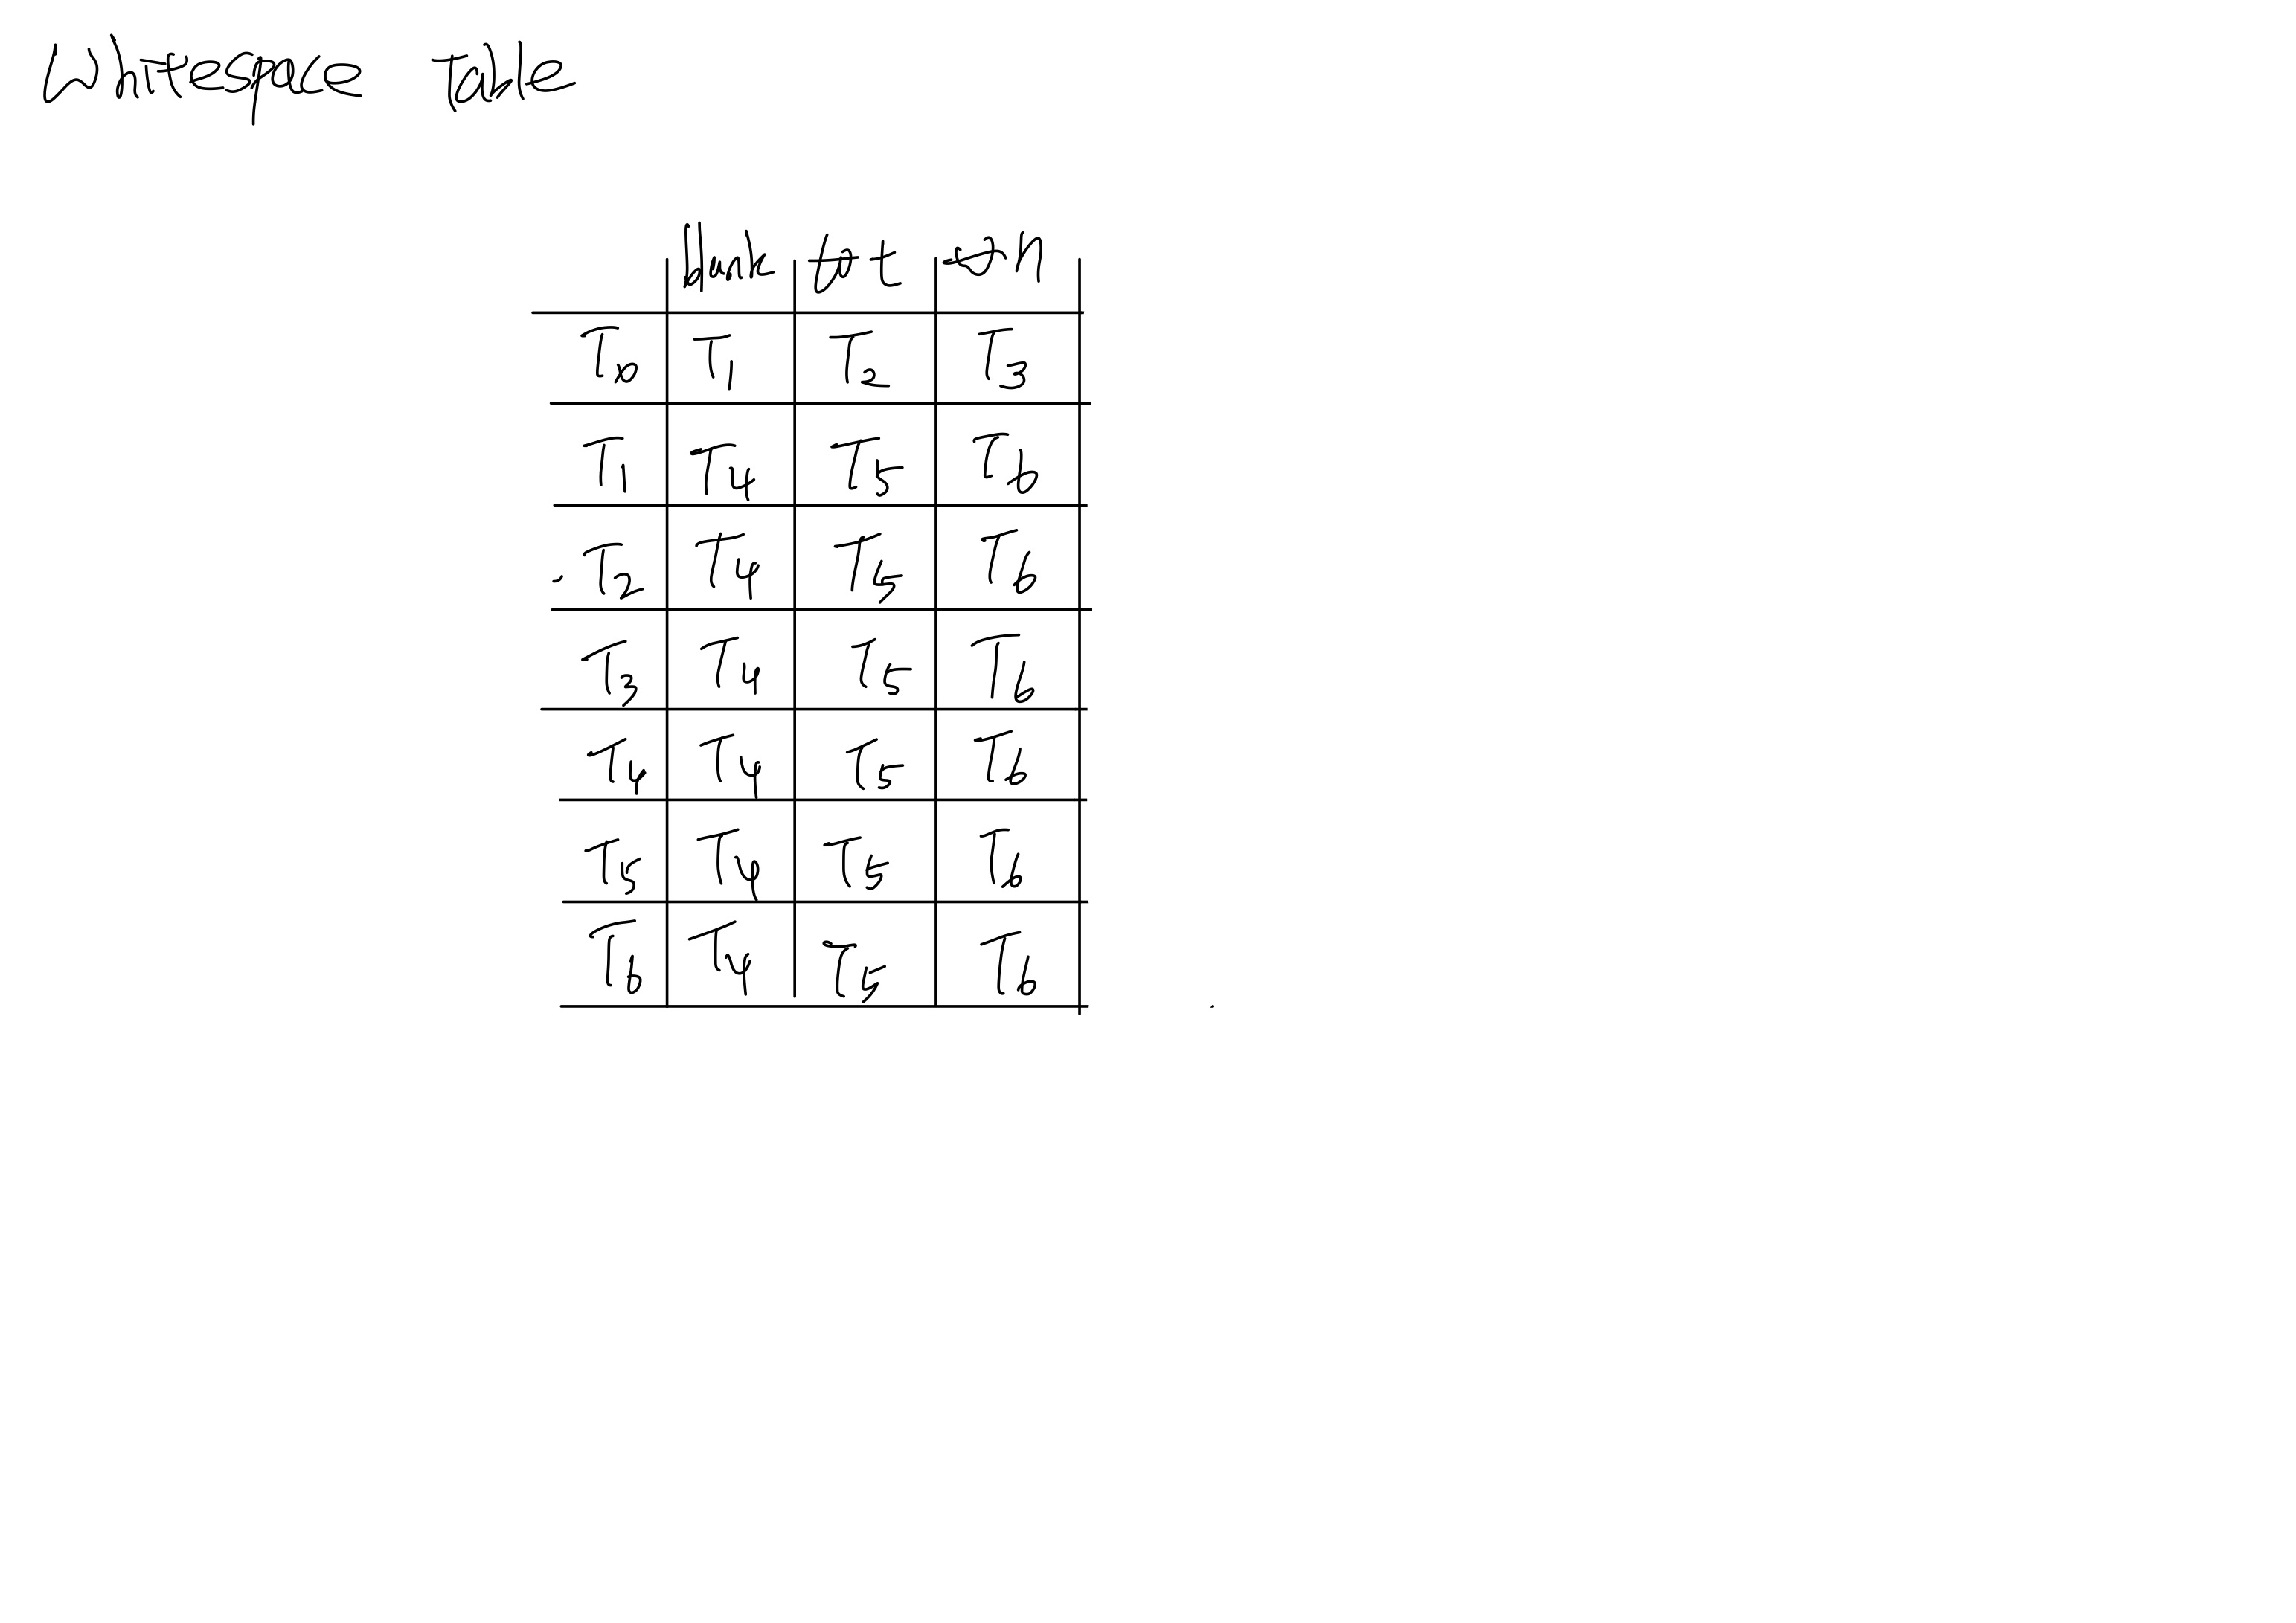 Whitespace table
blank t n
T0 T1 T2 T3
T1 T4 T5 T6
T2 T4 T5 T6
T3 T4 T5 T6
T4 T4 T5 T6
T5 T4 T5 T6
T6 T4 T5 T6